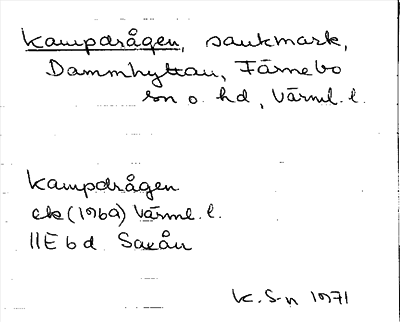 Kampdrågen, sankmark,
Dammhyttan, Färnebo
sn o. hd, Värml. l.
Kampdrågen
ek (1969) Värml. l.
11E 6 d Saxån
K. S-n 1971